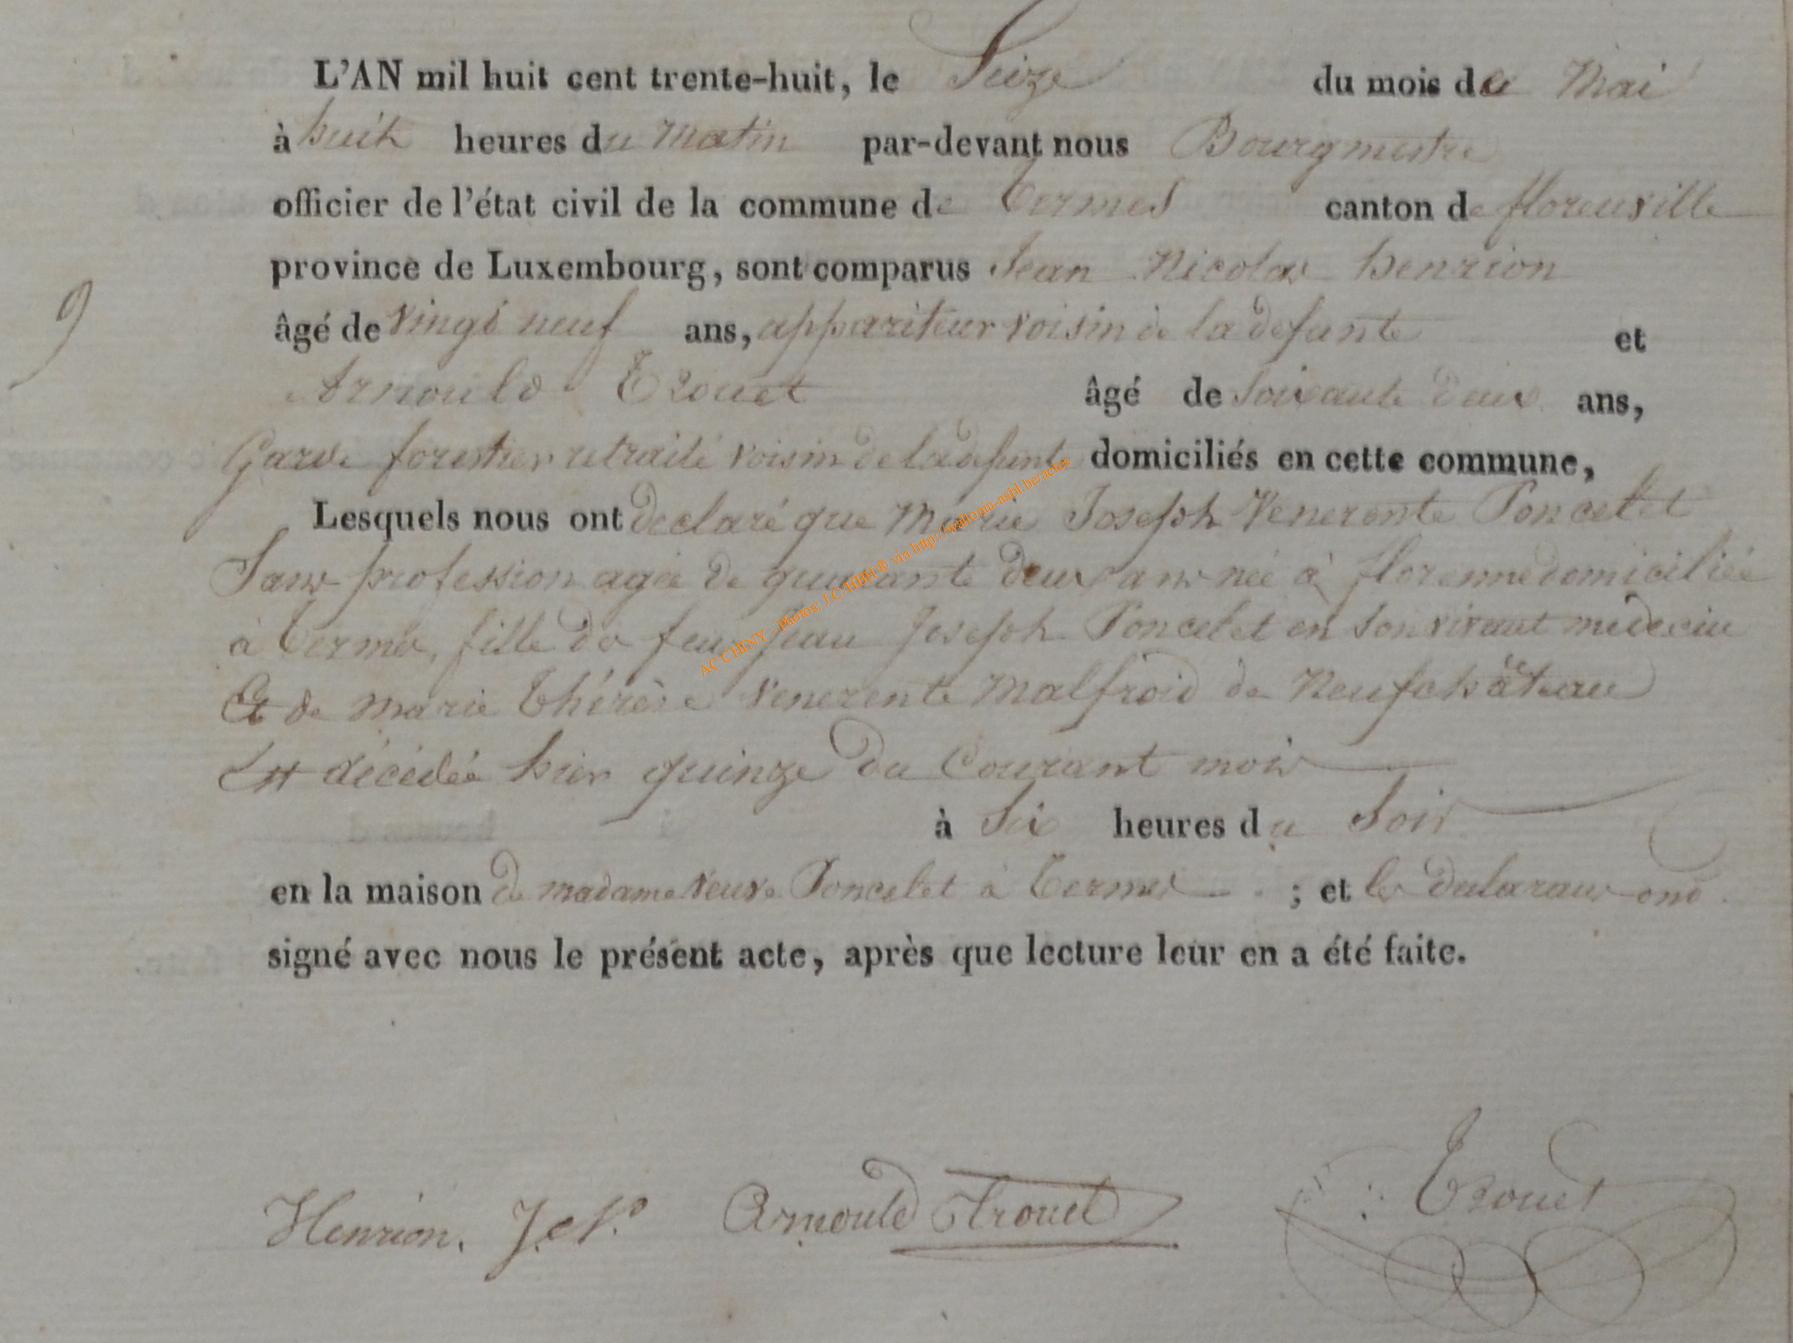 L'AN mil huit cent trente-huit, le Seize du mois de Mai
à huit heures du Matin par-devant nous Bourgmestre
officier de l'état civil de la commune de Termes canton de florenville
province de Luxembourg, sont comparus Jean Nicolas henrion
9
âgé de vingt neuf ans, appariteur voisin de la defunte et
Arnould Trouet âgé de Soixante Deux ans,
Garde forestier retraité voisin de la defunte domiciliés en cette commune,
Lesquels nous ont declaré que Marie Joseph Venerente Poncelet
Sans profession agée de quarante deux ans née à florenne domiciliée
à Termes, fille de feu Jean Joseph Poncelet en son vivant medecin
Et de Marie thérèse Venerente Malfroid de Neufchâteau
Est décédée hier quinze du Courant mois
à Six heures du Soir
en la maison de madame veuve Poncelet à Termes ; et les declarans ont
signé avec nous le présent acte, après que lecture leur en a été faite.
Henrion. J. N. Arnould Trouet Trouet